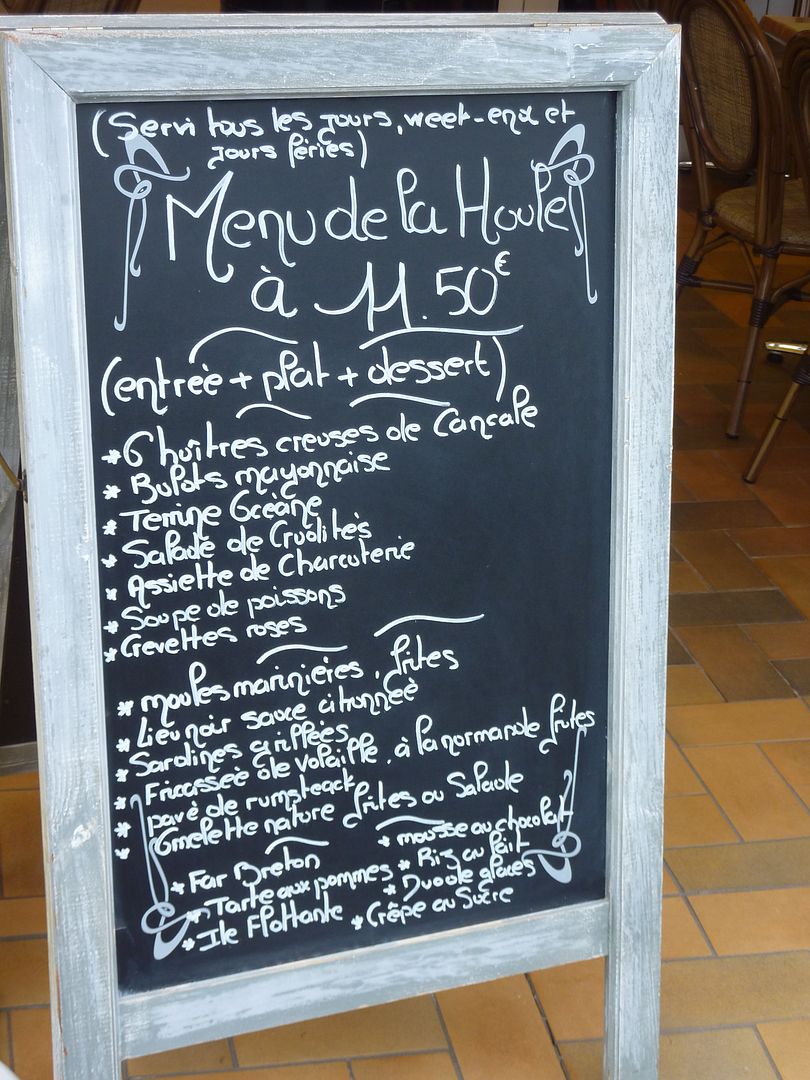 (Servi tous les jours, week-end et
jours féries)
Menu de la Houle
à 11.50€
(entrée + plat + dessert)
* 6 huîtres creuses de Cancale
* Bulots mayonnaise
* Terrine Océane
* Salade de Crudités
* Assiette de Charcuterie
* Soupe de poissons
* Crevettes roses
* moules marinières, frites
* Lieu noir sauce citronnée
* Sardines grillées
* Fricassée de volaille, à la normande frites
* pavé de rumsteack
* Omelette nature frites ou Salade
* Far Breton
* Tarte aux pommes
* Ile Flottante
* mousse au chocolat
* Riz au lait
* Duo de glaces
* Crêpe au Sucre